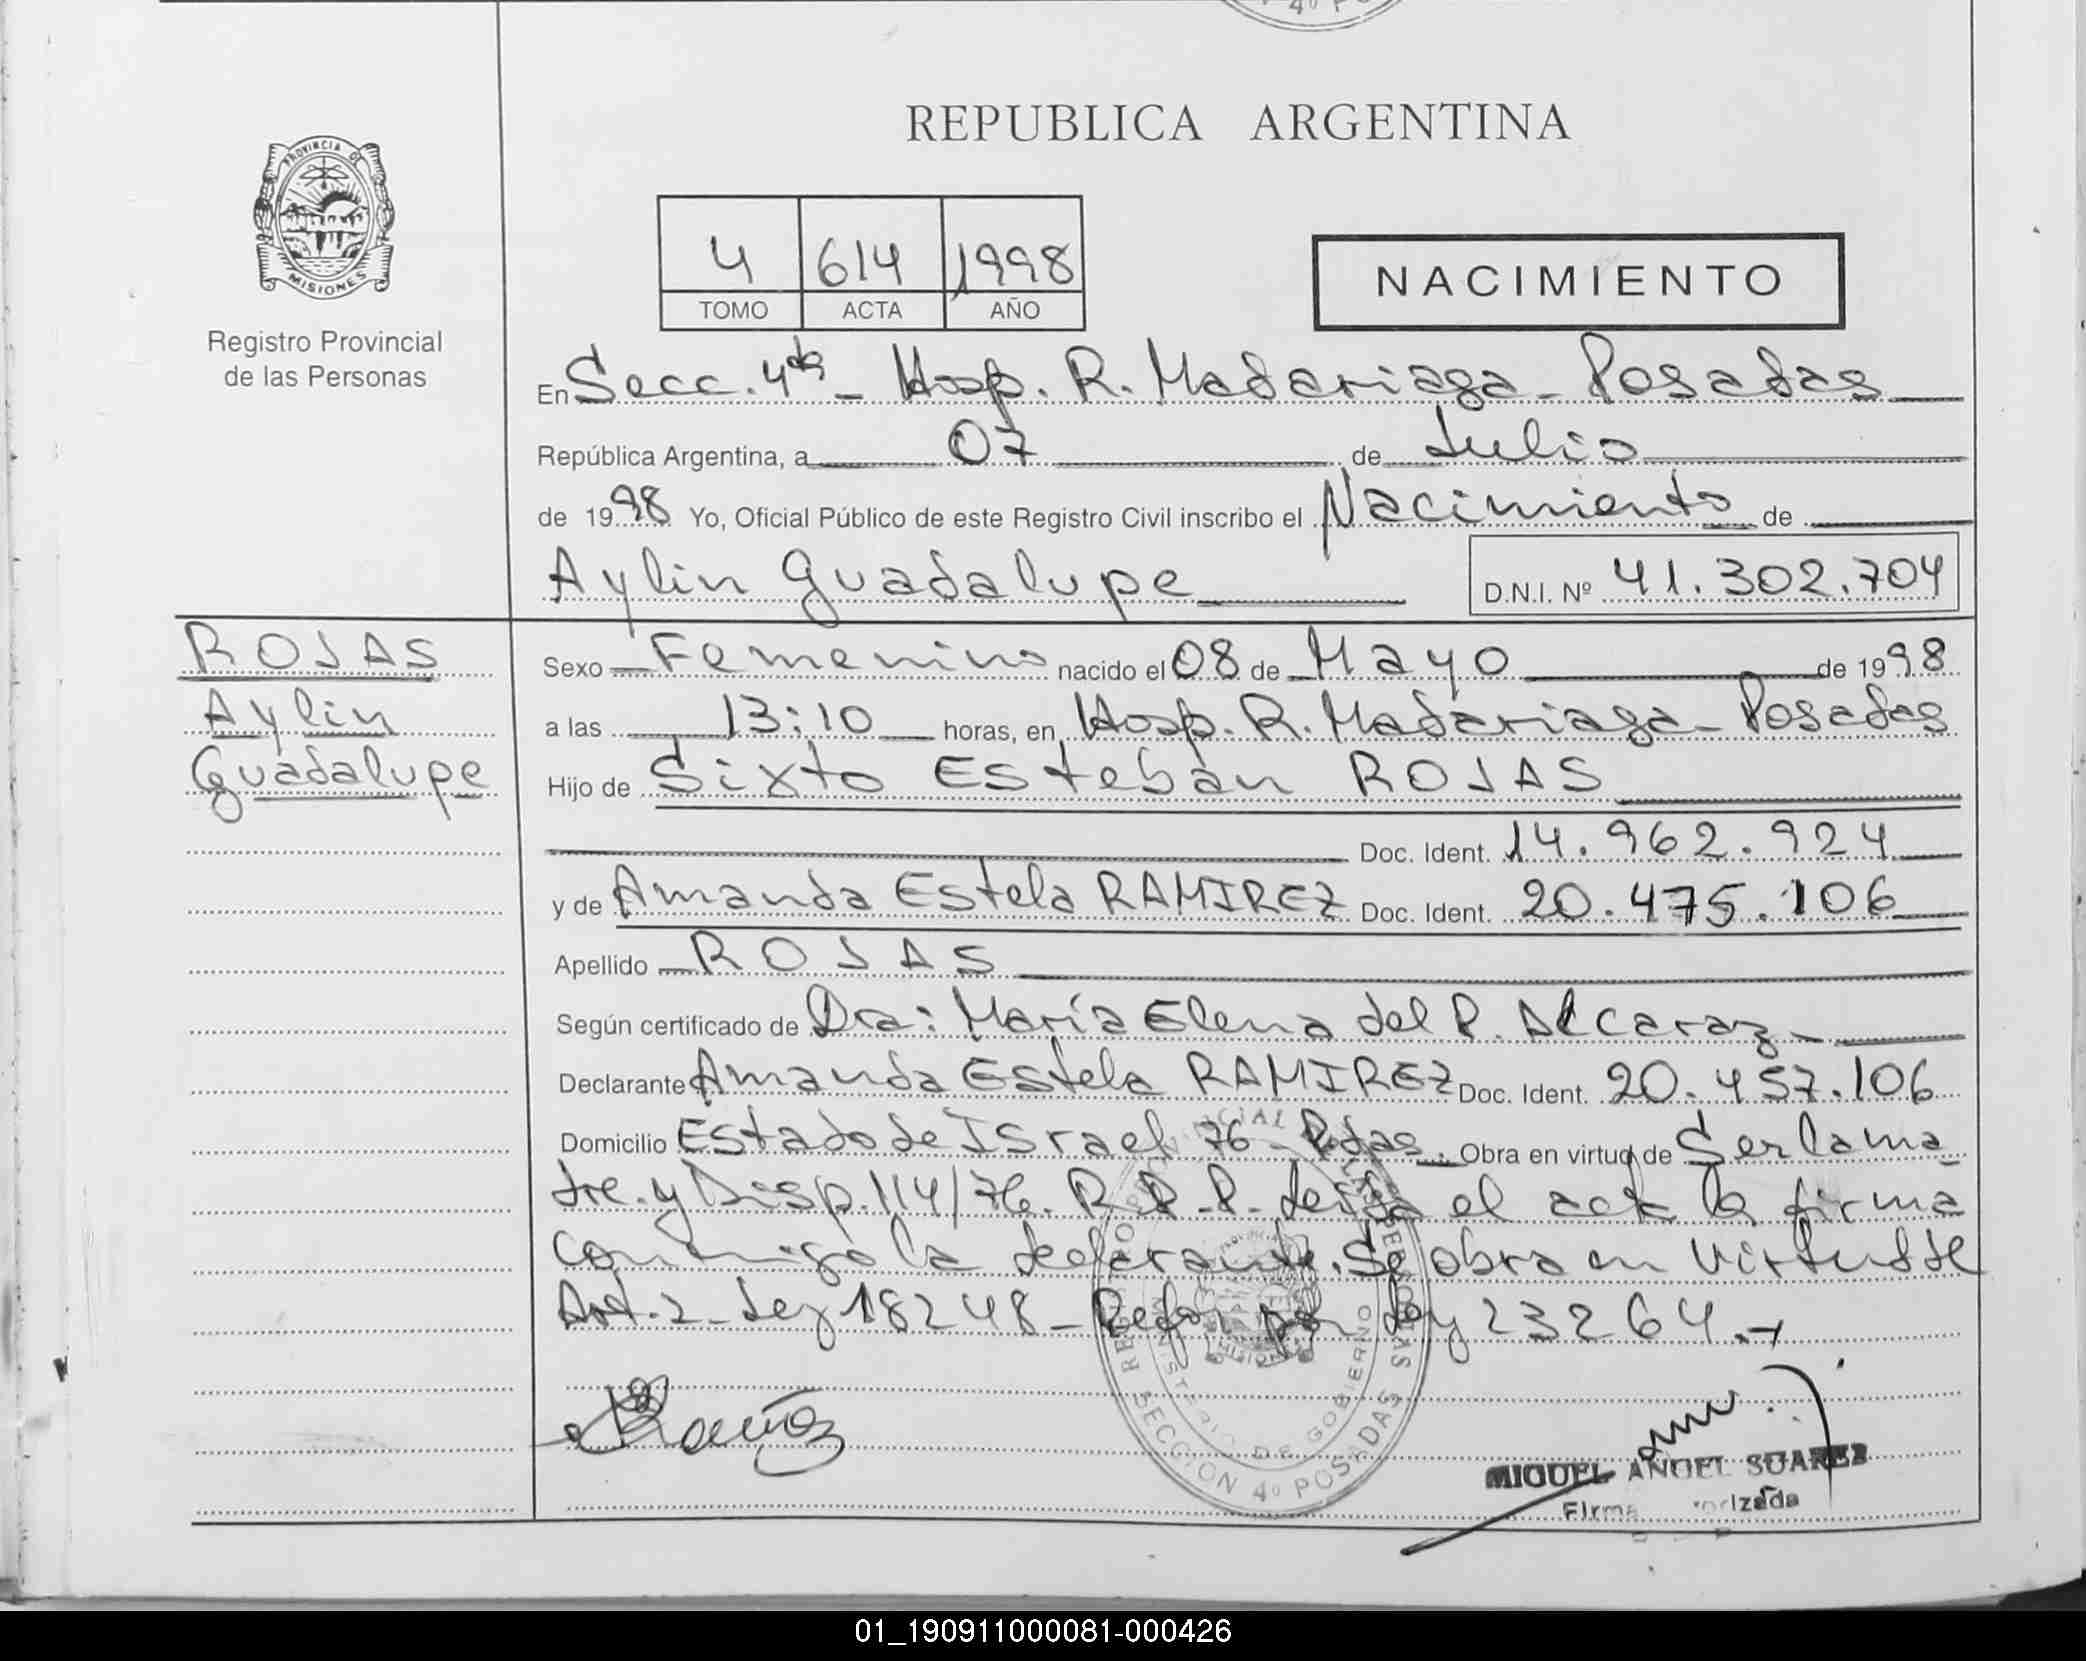 4º PO
REPUBLICA ARGENTINA
PROVINCIA DE
MISIONES
Registro Provincial
de las Personas
4 614 1998
TOMO ACTA AÑO
NACIMIENTO
En Secc. 4ta - Hosp. R. Madariaga - Posadas
República Argentina, a 07 de Julio
de 1998 Yo, Oficial Público de este Registro Civil inscribo el Nacimiento de
Aylin Guadalupe D.N.I. Nº 41.302.704
ROJAS
Aylin
Guadalupe
Sexo Femenino nacido el 08 de Mayo de 1998
a las 13:10 horas, en Hosp. R. Madariaga - Posadas
Hijo de Sixto Esteban ROJAS
Doc. Ident. 14.962.924
y de Amanda Estela RAMIREZ Doc. Ident. 20.475.106
Apellido ROJAS
Según certificado de Dra: María Elena del P. Alcaraz -
Declarante Amanda Estela RAMIREZ Doc. Ident. 20.457.106
Domicilio Estado de Israel 76 - Pdas. Obra en virtud de Ser la ma
dre. y Disp. 114/76. R.P.P. leída el acta la firma
conmigo la declarante. Se obra en virtud de
Art. 2 - Ley 18248 - Refor por Ley 23264.-
MINISTERIO DE GOBIERNO
SECCION 4º POSADAS
MISIONES
MIGUEL ANGEL SUAREZ
01_190911000081-000426